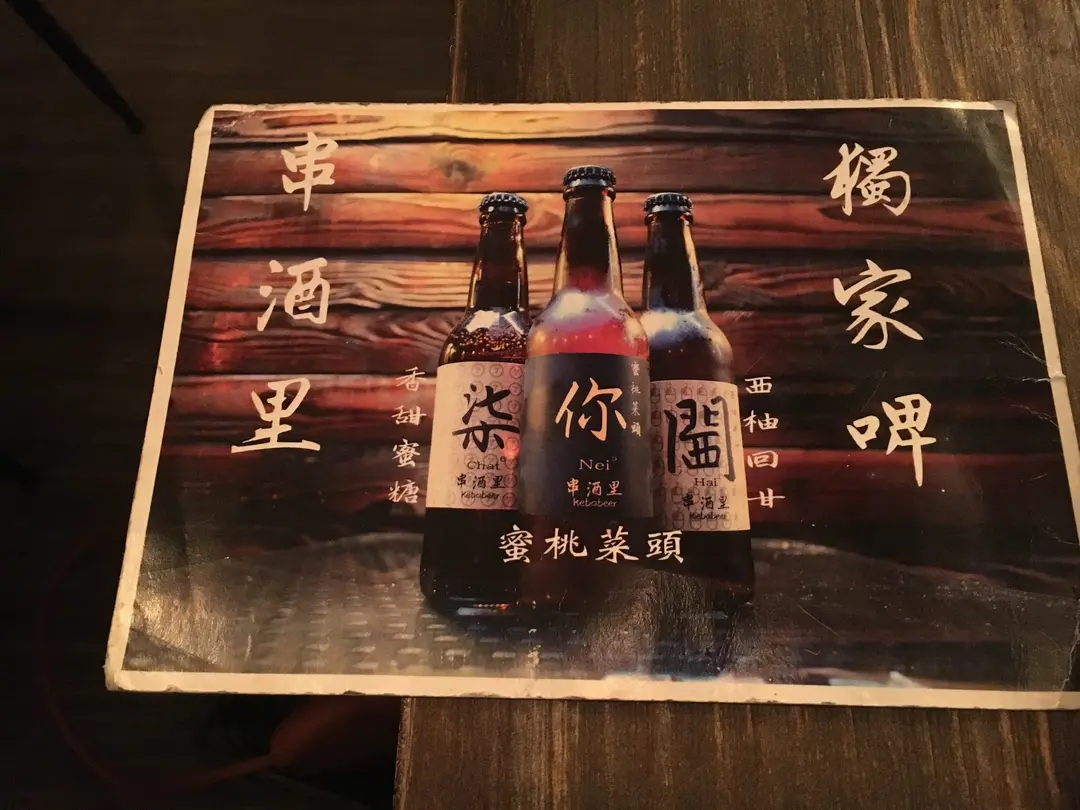 獨家啤
串酒里
香甜蜜糖
柒
Chat
串酒里
Kebabeer
你
蜜桃菜頭
Nei
串酒里
Kebabeer
Hai
串酒里
Kebabeer
西柚回甘
蜜桃菜頭